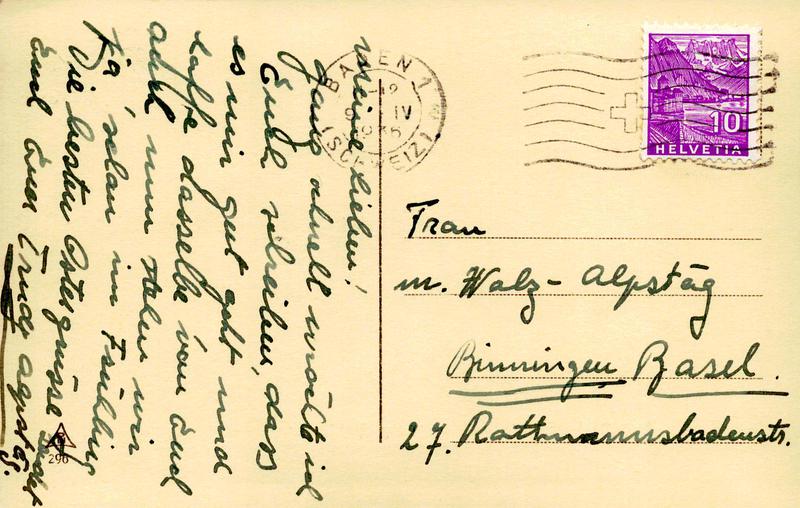 Meine Lieben!
ganz schnell möchte ich
Euch schreiben, dass
es mir gut geht und
hoffe dasselbe von Euch
auch. nun stehen wir
ja, schon im Frühling
Die besten Ostergrüsse sendet
Euch Eure Trudy Alpstäg
BADEN 1
IV
(SCHWEIZ)
10
HELVETIA
Frau
M. Walz - Alpstäg
Binningen Basel.
27. Rottmannsbodenstr.
296